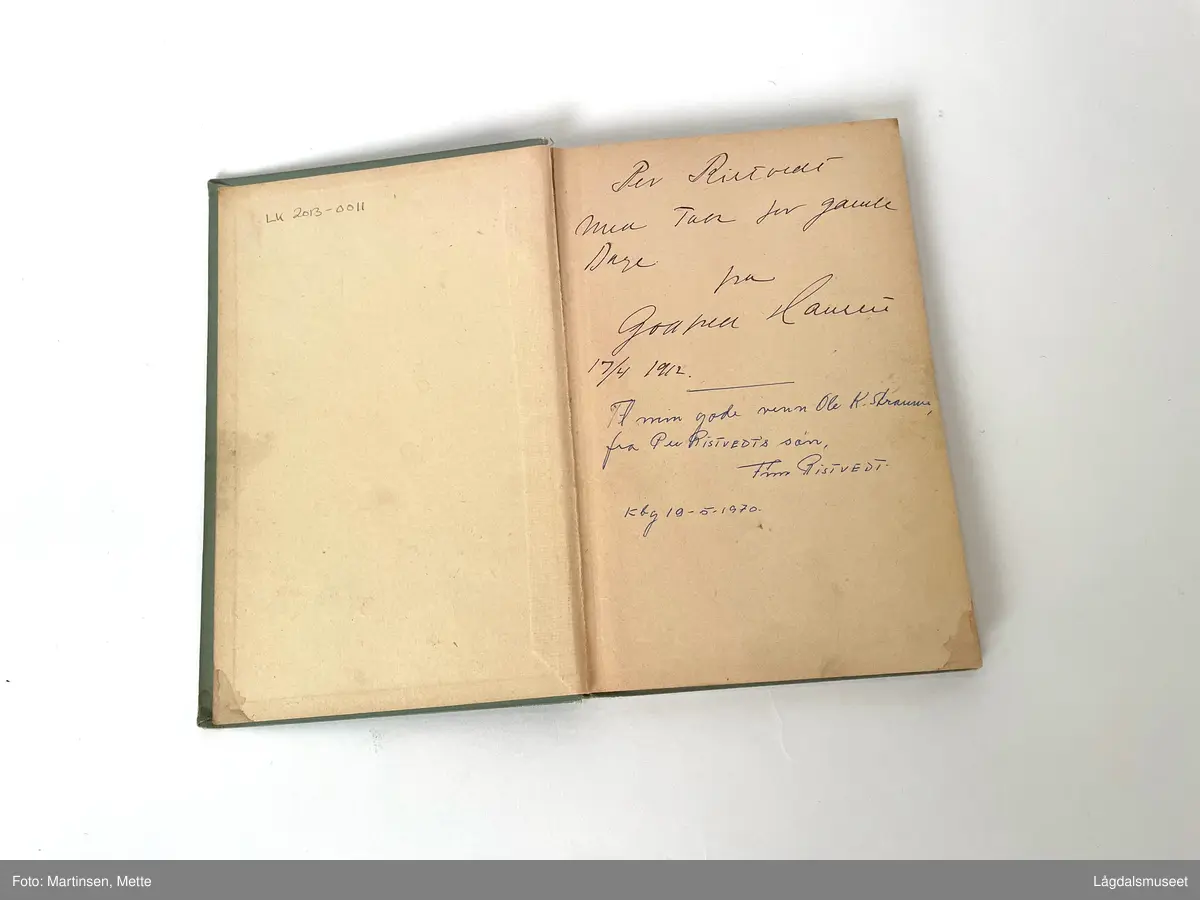 LK 2013-0011
Per Ristvedt
med Takk for gamle
Dage
fra
Godtfred Hansen
17/4 1912.
Til min gode venn Ole K. Straume,
fra Per RISTVEDTs søn,
Finn RISTVEDT.
Kbg 19-5-1970.
Foto: Martinsen, Mette
Lågdalsmuseet